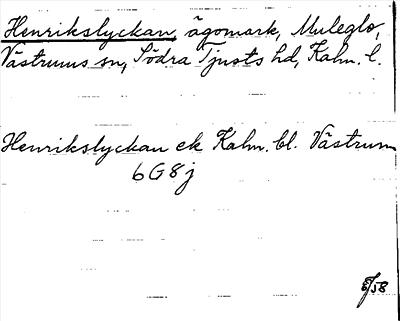 Henrikslyckan, ägomark, Muleglo,
Västrums sn, Södra Tjusts hd, Kalm. l.
Henrikslyckan ek Kalm. bl. Västrum
6G8j